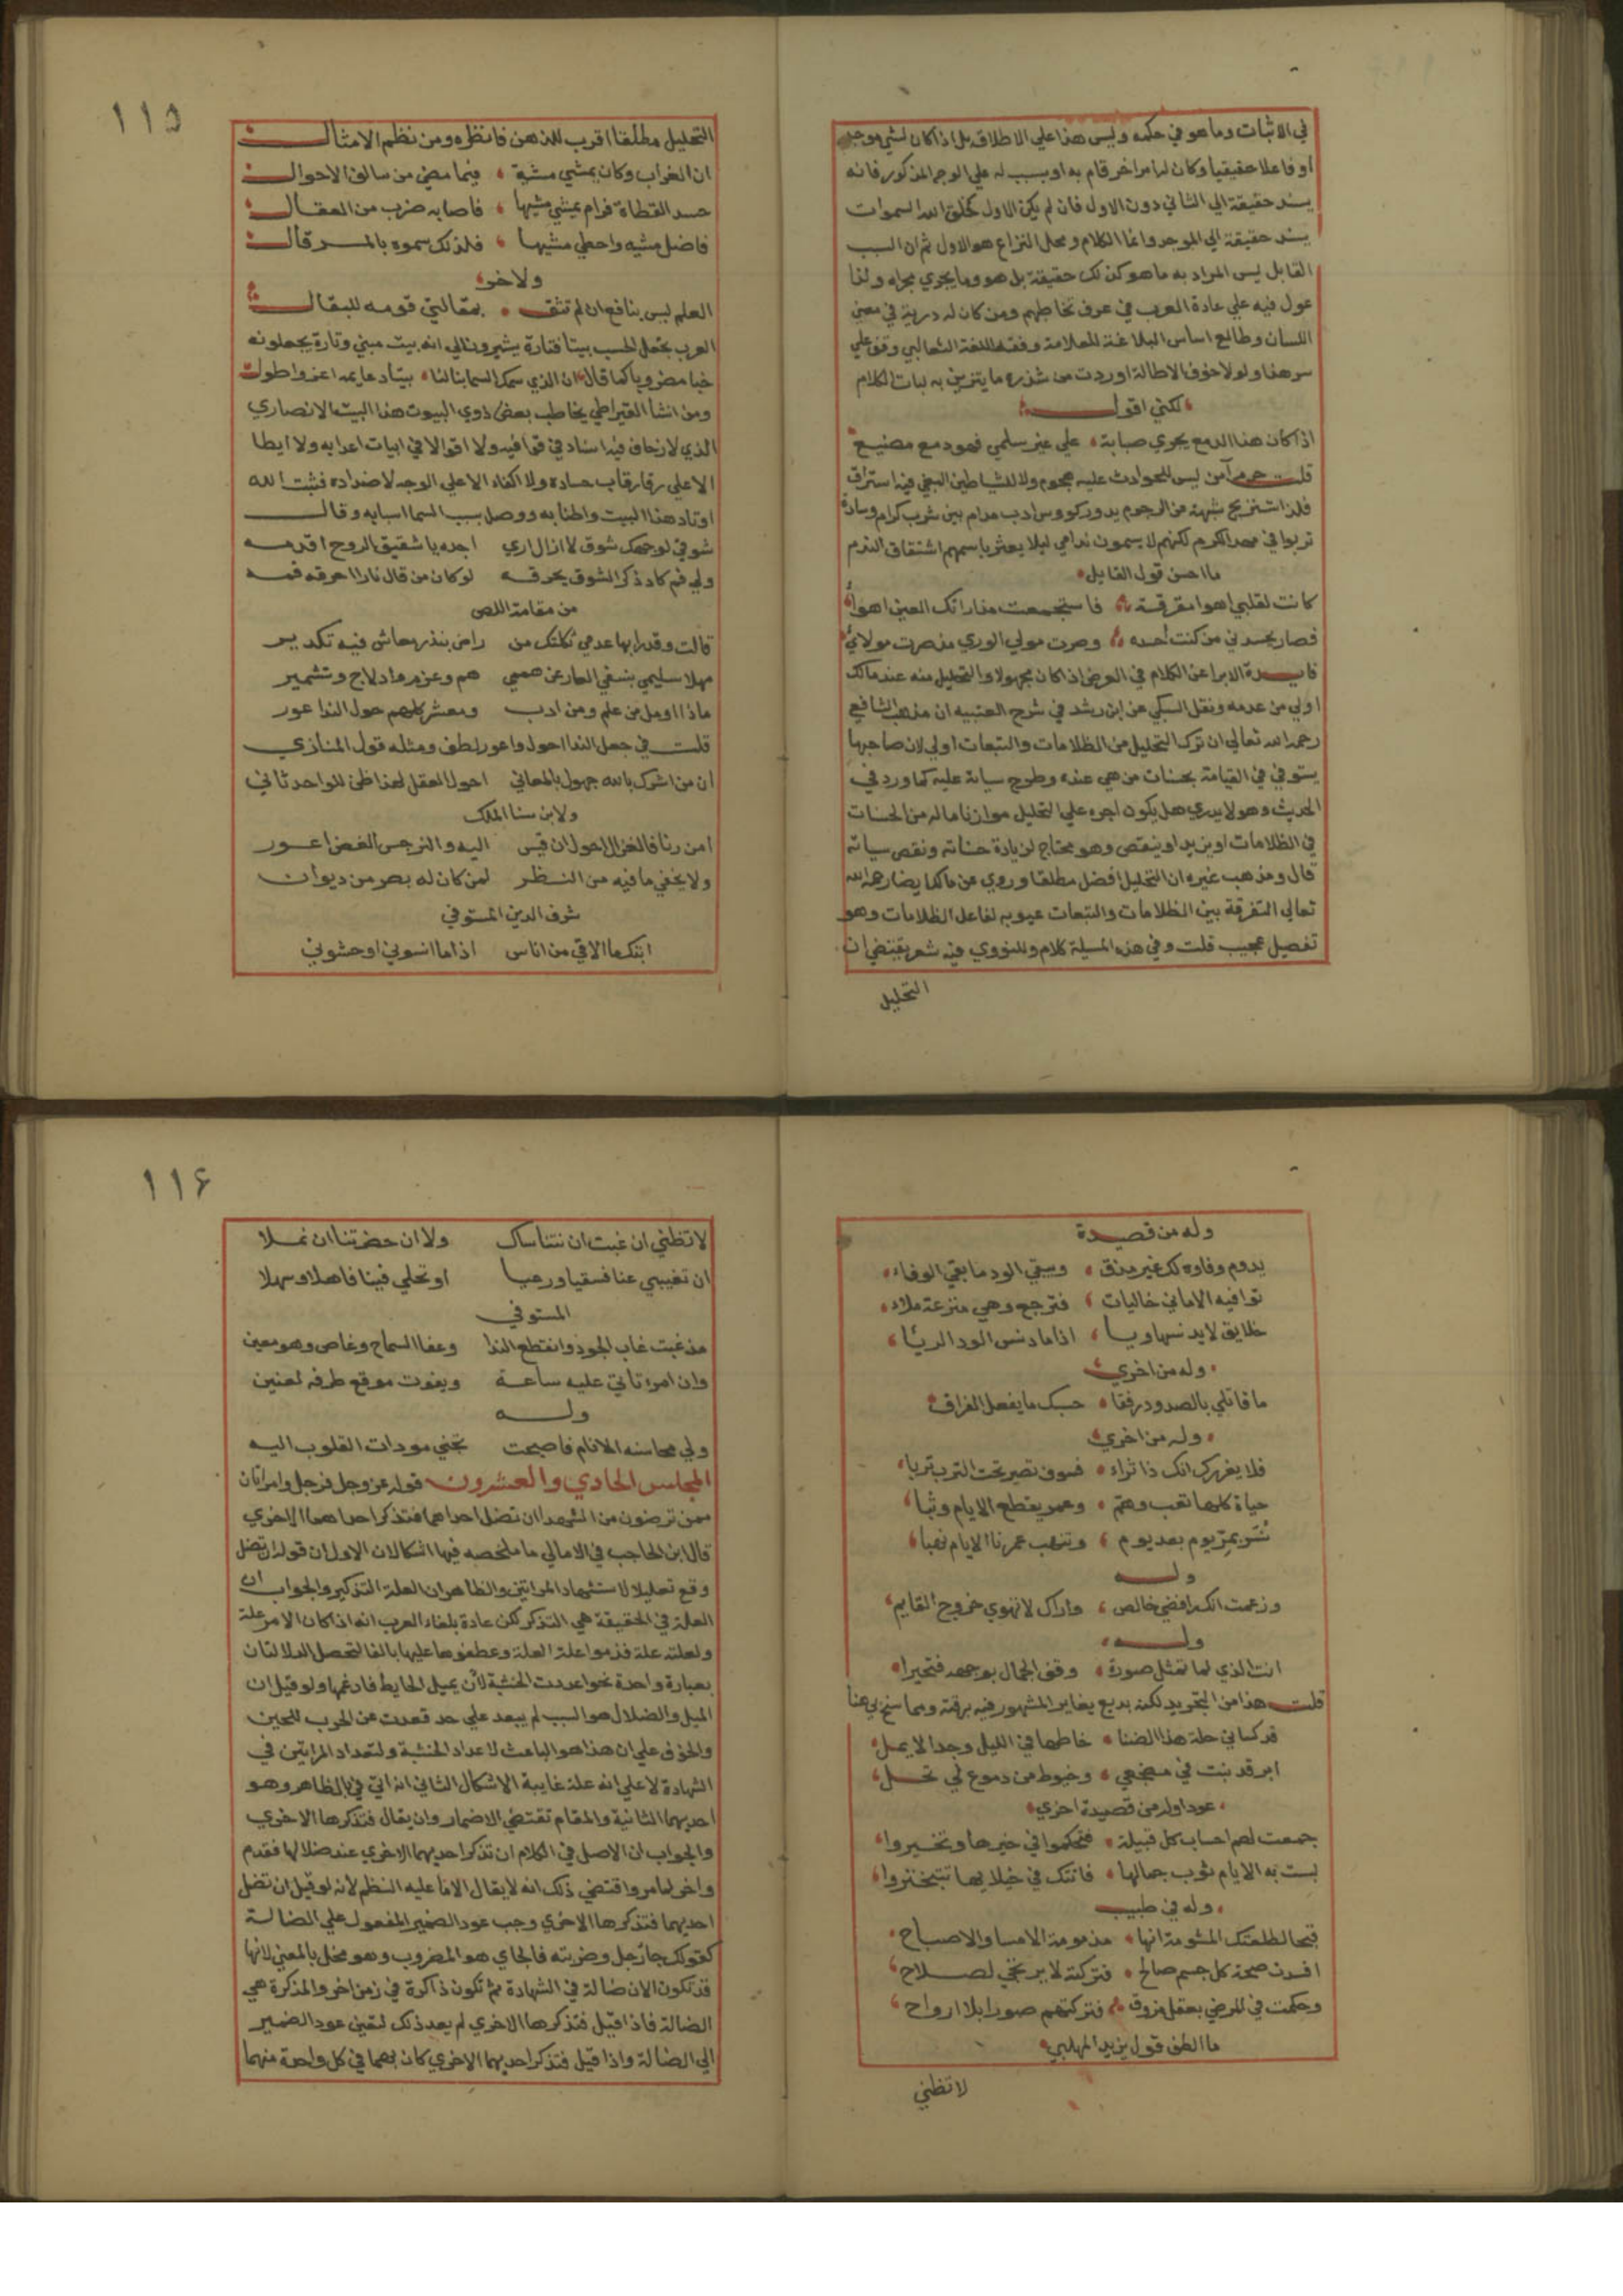 في الاثبات وما هو في حكمه وليس هذا علي الاطلاق بل اذا كان لشي موجد
او فاعلا حقيقيا وكان لنا مر اخر قام به او بسبب له علي الوجه المذكور فانه
يسند حقيقة الي الثاني دون الاول فان لم يكن الاول كخلق الله السموات
يسند حقيقة الي الموجد وانما الكلام ومحل النزاع هو الاول ثم ان السبب
القابل ليس المراد به ما هو كذلك حقيقة بل هو وما يجري مجراه ولذا
عول فيه علي عادة العرب في عرف تخاطبهم ومن كان له دربة في معني
اللسان وطالع اساس البلاغة للعلامة وفقه اللغة الثعالبي وقف علي
سر هذا ولولا خوف الاطالة اوردت من شذره ما يتزين به لبات الكلام
لكني اقول
اذا كان هذا الدمع يجري صبابة علي غير سلمي فهو دمع مضيع
قلت حرم آمن ليس للحوادث عليه هجوم ولا للشياطين البغي فيه استراق
فلذا شبهة من الرجوم يدور كووس ادب مدام بين شرب كرام وسادة
تربوا في مهد الكرم لكنهم لا يسمون ندامي ليلا يعثر باسمهم اشتقاق الندم
ما احسن قول القايل
كانت لقلبي اهوا مفرقة فاستجمعت مذ راتك العين اهوائي
فصار يحسدني من كنت احسده وصرت مولي الوري مذ صرت مولائي
فايدة الابرا عن الكلام في العرض اذا كان مجهولا والتحليل منه عند مالك
اولي من عدمه ونقل السبكي عن ابن رشد في شرح العتبيه ان مذهب الشافعي
رحمه الله تعالي ان ترك التحليل من الظلامات والتبعات اولي لان صاحبها
يستوفي في القيامة بحسنات من هي عنده وطرح سياته عليه كما ورد في
الحديث وهو لا يدري هل يكون اجره علي التحليل موازنا ماله من الحسنات
في الظلامات او يزيد او ينقص وهو محتاج لزيادة حسناته ونقص سياته
قال ومذهب غيره ان التحليل افضل مطلقا وروي عن مالك ايضا رحمه الله
تعالي التفرقة بين الظلامات والتبعات عيوبه لفاعل الظلامات وهو
تفصيل عجيب قلت وفي هذه المسيلة كلام وللنووي فيه شعر يقتضي ان
التحليل
١١٥
التحليل مطلقا اقرب للذهن فانظره ومن نظم الامثال
ان الغراب وكان يمشي مشية فيما مضي من سالف الاحوال
حسد القطاة فرام يمشي مشيها فاصابه ضرب من العقال
فاضل مشيه واخطي مشيها فلذلك سموه بالمرقال
ولاخر
العلم ليس بنافع ان لم تثق بمقالتي قومه للبقال
العرب تجعل الحسب بيتا فتارة يشيرون الي انه بيت مبني وتارة يجعلونه
خبا مضروبا كما قال ان الذي سمك السما بنا لنا بيتا دعايمه اعز واطول
ومن انشا القيراطي يخاطب بعض ذوي البيوت هذا البيت الانصاري
الذي لا زحاف فيه اسناد في قوافيه ولا اقوا الا في ابيات اعدايه ولا ايطا
الا علي رقاب حساده ولا اكفاء الا علي الوجه لاضداده فثبت الله
اوتاد هذا البيت واطنابه ووصل بسبب السما اسبابه وقال
شوقي لوجهك شوق لا ازال اري اجده يا شقيق الروح اقدمه
ولي فم كاد ذكر الشوق يحرقه لو كان من قال نارا احرقه فمه
من مقامة اللص
قالت وقد رابها عدمي ثكلتك من راض بنذر معاش فيه تكدير
مهلا سليمي ينفي العار عن هممي هم وعزم وادلاج وتشمير
ماذا اومل من علم ومن ادب ومعشر كلهم حول الندا عور
قلت في جعل الندا احول واعور لطف ومثله قول المنازي
ان من اشرك بالله جهول بالمعاني احول العقل لهذا ظن للواحد ثاني
ولابن سنا الملك
امن رنا فالغزال احول ان قيس اليه والنرجس الغض اعور
ولا يخفي ما فيه من النظر لمن كان له بصر من ديوان
شرف الدين المستوفي
ابثك ما الاقي من اناس اذا ما انسوني اوحشوني
وله من قصيدة
يدوم وفاوه لك غير مذق وسقي الود ما بقي الوفاء
توافيه الاماني خاليات فترجع وهي منزعة ملاء
خلايق لا يدنسها ويا اذا ما دنس الود الريا
وله من اخري
ما قاتلي بالصدود رفقا حسبك ما يفعل الفراق
وله من اخري
فلا يغررك انك ذا ثراء فسوف تصير تحت الترب تربا
حياة كلها تعب وهم وعمر يقطع الايام وثبا
نسر بمر يوم بعد يوم وتنهب عمرنا الايام نهبا
وله
وزعمت انك رافضي خالص واراك لا تهوي خروج القايم
وله
انت الذي لما تمثل صورة وقف الجمال بوجهه فتحيرا
قلت هذا من التجويد لكنه بديع يغاير المشهور فيه برقته ومما سنح لي هنا
قد كساني حلة هذا الضنا خاطها في الليل وجدا لا يمل
ابر قد نبت في مضجعي وخيوط من دموع لي تحل
عودا وله من قصيدة اخري
جمعت لهم احساب كل قبيلة فتحكموا في خيرها وتخيروا
لبست به الايام ثوب جمالها فاتتك في خيلايها تتبختروا
وله في طبيب
قبحا لطلعتك المشومة انها مذمومة الامسا والاصباح
افسدت صحة كل جسم صالح فتركته لا يرتجي لصلاح
وحكمت في المرضي بعقل مزوق فتركتهم صورا بلا ارواح
ما الطف قول يزيد المهلبي
لا تظني
١١۶
لا تظني ان غبت ان نتناساك ولا ان حضرتنا ان نملا
ان تغيبي عنا فسقيا ورعيا او تحلي فينا فاهلا وسهلا
المستوفي
مذ غبت غاب الجود وانقطع الندا وعفا السماح وغاص وهو معين
وان امرا تاتي عليه ساعة ويفوت موقع طرفه لغبين
وله
ولي محاسنه الانام فاصبحت تجني مودات القلوب اليه
المجلس الحادي والعشرون قوله عز وجل فرجل وامراتان
ممن ترضون من الشهدا ان تضل احداهما فتذكر احداهما الاخري
قال ابن الحاجب في الامالي ما ملخصه فيها اشكالان الاول ان قوله ان تضل
وقع تعليلا لاستشهاد المراتين والظاهر ان العلة التذكير والجواب ان
العلة في الحقيقة هي التذكر لكن عادة بلغاء العرب انه اذا كان الامر علة
ولعلته علة قدموا علة العلة وعطفوها عليها بالفا لتحصل الدلالتان
بعبارة واحدة نحو اعددت الخشبة لان يميل الحايط فادعمها ولو قيل ان
الميل والضلال هو السبب لم يبعد علي حد قعدت عن الحرب للجبن
والخوف علي ان هذا هو الباعث لاعداد الخشبة ولتعداد المراتين في
الشهادة لا علي انه علة غايبة الاشكال الثاني انه اتي في بالظاهر وهو
احديهما الثانية والمقام تقتضي الاضمار وان يقال فتذكرها الاخري
والجواب ان الاصل في الكلام ان تذكر احديهما الاخري عند ضلالها فقدم
واخر لما مر واقتضي ذلك انه لا يقال الا ما عليه النظم لانه لو قيل ان تضل
احديهما فتذكرها الاخري وجب عود الضمير المفعول علي الضالة
كقولك جا رجل وضربته فالجاي هو المضروب وهو مخل بالمعني لانها
قد تكون الان ضالة في الشهادة ثم تكون ذاكرة في زمن اخر والمذكرة هي
الضالة فاذا قيل فتذكرها الاخري لم يعد ذلك لتعين عود الضمير
الي الضالة واذا قيل فتذكر احديهما الاخري كان مبهما في كل واحدة منهما